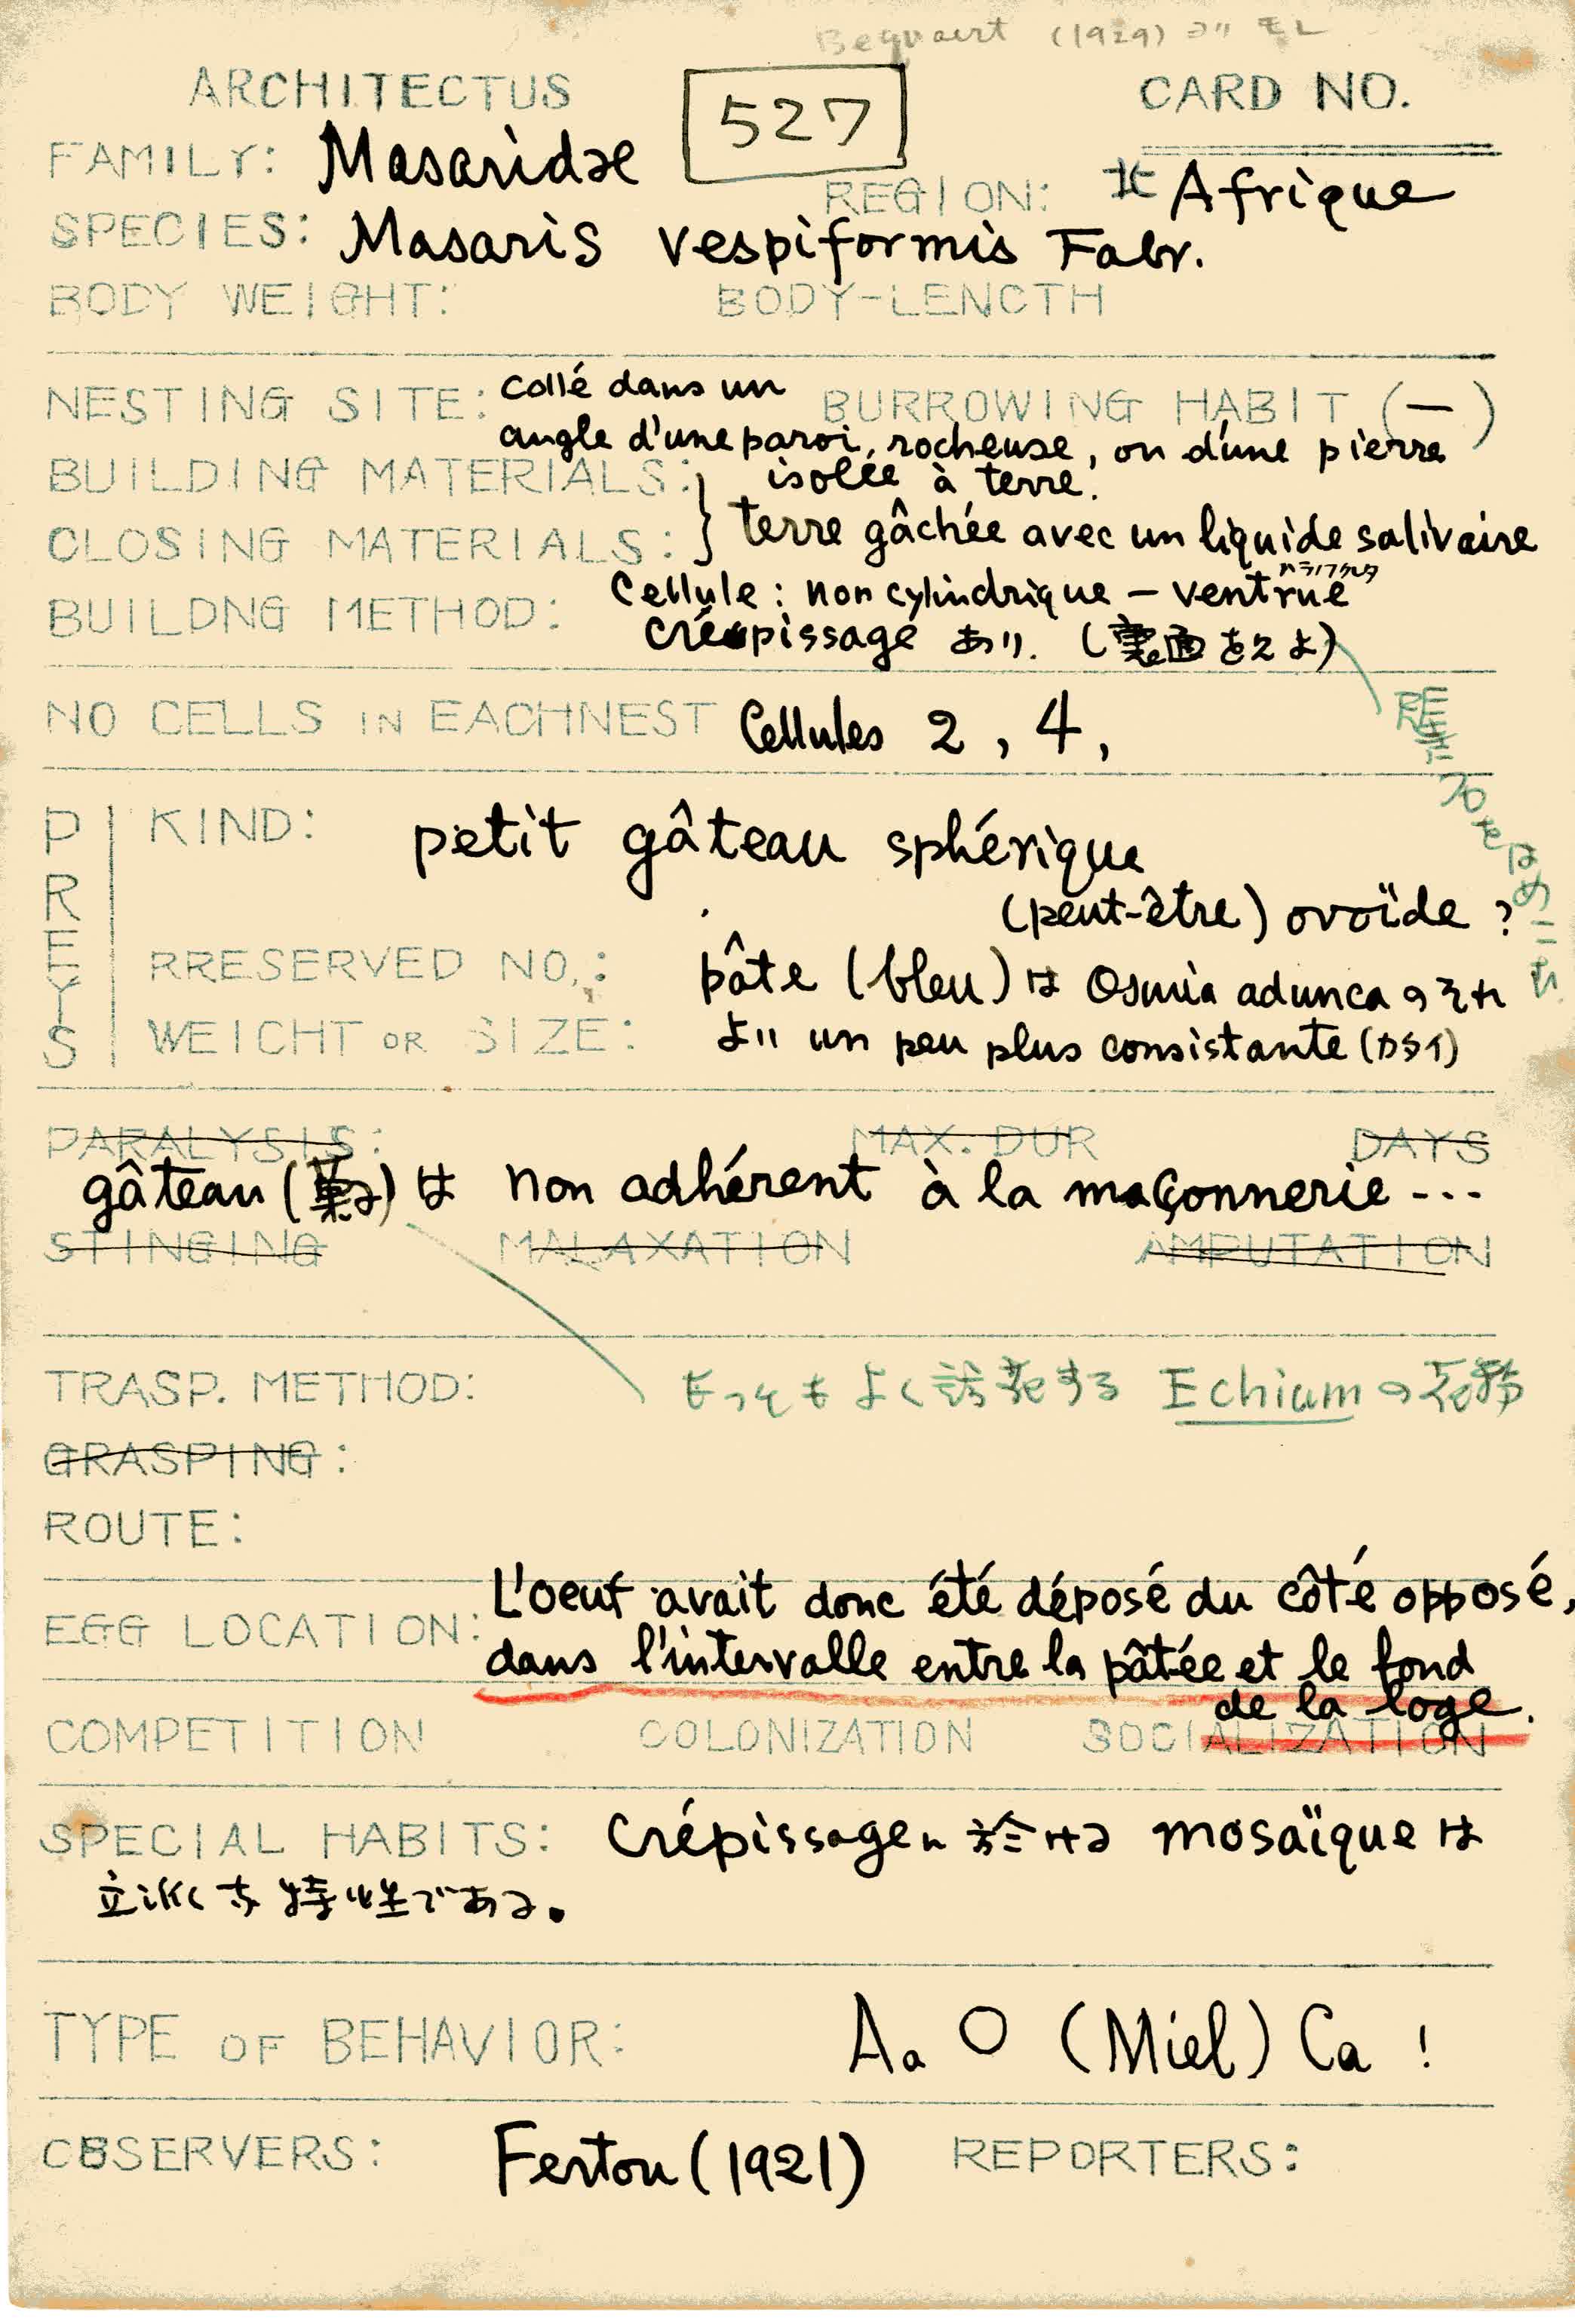 Bequaert (1929) ヨリ モレ
ARCHITECTUS
527
CARD NO.
FAMILY: Masaridae
REGION: 北 Afrique
SPECIES: Masaris vespiformis Fabr.
BODY WEIGHT: BODY-LENCTH
NESTING SITE: Collé dans un
BURROWING HABIT (—)
angle d'une paroi, rocheuse, ou d'une pierre
isolée à terre.
BUILDING MATERIALS:
CLOSING MATERIALS: } terre gâchée avec un liquide salivaire
Cellule : non cylindrique — ventrue
BUILDNG METHOD: Crépissage あり. (裏面をみよ)
NO CELLS IN EACHNEST Cellules 2 , 4 ,
PREYS
KIND: petit gâteau sphérique
(peut-être) ovoïde ?
RRESERVED NO.: pâte (bleu) は Osmia adunca のそれ
WEICHT OR SIZE: より un peu plus consistante (カタイ)
PARALYSIS: MAX. DUR DAYS
gâteau (菓子) は non adhérent à la maçonnerie ...
STINGING MALAXATION AMPUTATION
TRASP. METHOD: もっともよく訪花する Echium の花粉
GRASPING:
ROUTE:
L'oeuf avait donc été déposé du côté opposé,
EGG LOCATION: dans l'intervalle entre la pâtée et le fond
de la loge.
COMPETITION COLONIZATION SOCIALIZATION
SPECIAL HABITS: Crépissage に於ける mosaïque は
立派な特性である。
TYPE OF BEHAVIOR: Aa O (Miel) Ca !
OBSERVERS: Ferton (1921) REPORTERS: